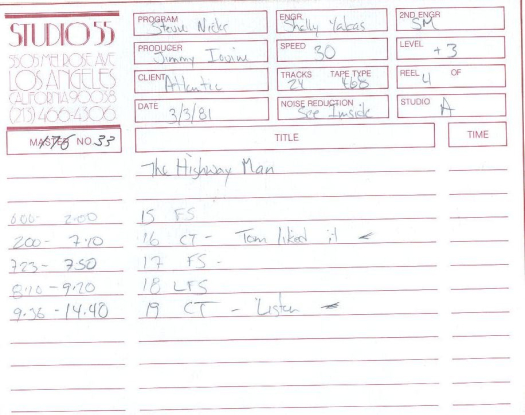 STUDIO 55
5505 MELROSE AVE
LOS ANGELES
CALIFORNIA 90038
(213) 466-4306
PROGRAM Stevie Nicks
ENGR. Shelly Yakas
2ND ENGR SM
PRODUCER Jimmy Iovine
SPEED 30
LEVEL +3
CLIENT Atlantic
TRACKS 24
TAPE TYPE
REEL 4 OF
DATE 3/3/81
NOISE REDUCTION See Inside
STUDIO A
MASTER NO. 33
TITLE
TIME
The Highway Man
000- 200 15 FS
200- 710 16 CT - Tom liked it
723- 750 17 FS -
810 - 920 18 LFS
9.36 - 14.40 19 CT - Listen